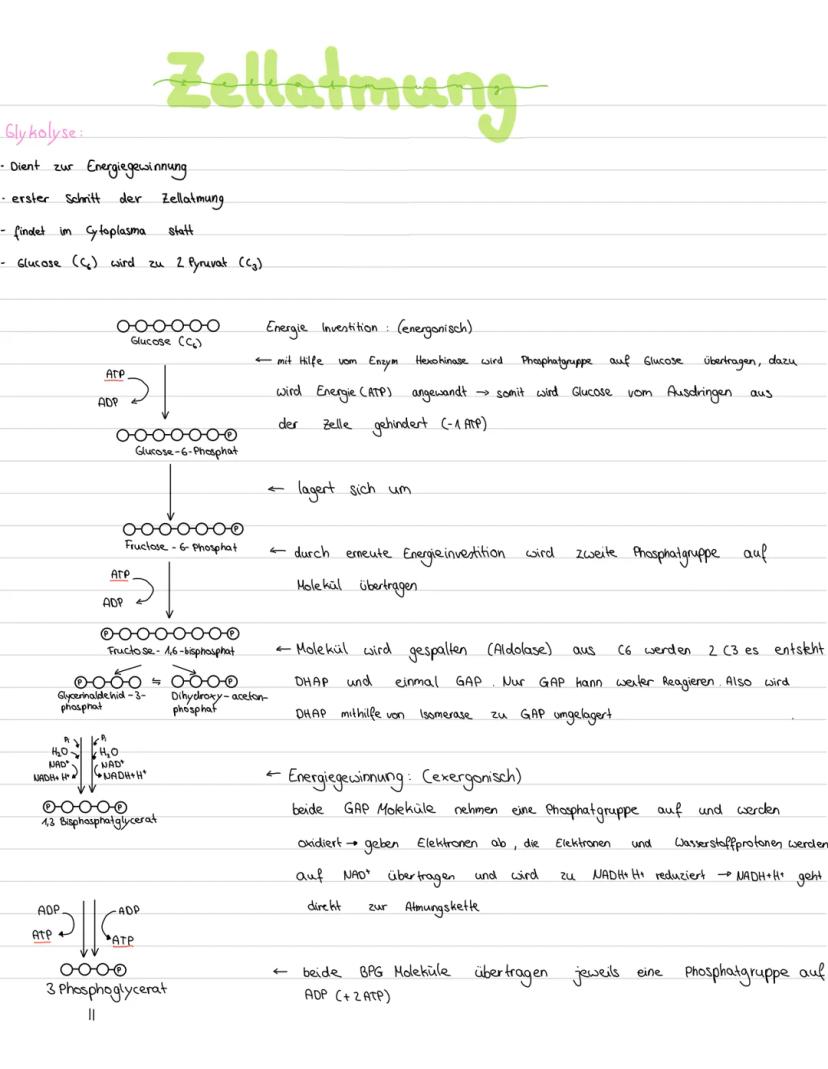 Zellatmung
Glykolyse:
- Dient zur Energiegewinnung
- erster Schritt der Zellatmung
- findet im Cytoplasma statt
- Glucose (C₆) wird zu 2 Pyruvat (C₃)
Glucose (C₆)
Energie Investition : (energonisch)
← mit Hilfe vom Enzym Hexokinase wird Phosphatgruppe auf Glucose übertragen, dazu
wird Energie (ATP) angewandt → somit wird Glucose vom Ausdringen aus
der Zelle gehindert (-1 ATP)
ATP
ADP
P
Glucose-6-Phosphat
← lagert sich um
P
Fructose - 6- Phosphat
← durch erneute Energieinvestition wird zweite Phosphatgruppe auf
Molekül übertragen
ATP
ADP
P P
Fructose- 1,6-bisphosphat
← Molekül wird gespalten (Aldolase) aus C6 werden 2 C3 es entsteht
DHAP und einmal GAP. Nur GAP kann weiter Reagieren. Also wird
DHAP mithilfe von Isomerase zu GAP umgelagert
P ⇋ P
Glycerinaldehid-3-
phosphat
Dihydroxy-aceton-
phosphat
Pᵢ Pᵢ
H₂O H₂O
NAD⁺ NAD⁺
NADH+H⁺ NADH+H⁺
← Energiegewinnung: (exergonisch)
beide GAP Moleküle nehmen eine Phosphatgruppe auf und werden
oxidiert → geben Elektronen ab, die Elektronen und Wasserstoffprotonen werden
auf NAD⁺ übertragen und wird zu NADH+H⁺ reduziert → NADH+H⁺ geht
direkt zur Atmungskette
P P
1,3 Bisphosphatglycerat
ADP ADP
ATP ATP
P
3 Phosphoglycerat
← beide BPG Moleküle übertragen jeweils eine Phosphatgruppe auf
ADP (+2 ATP)